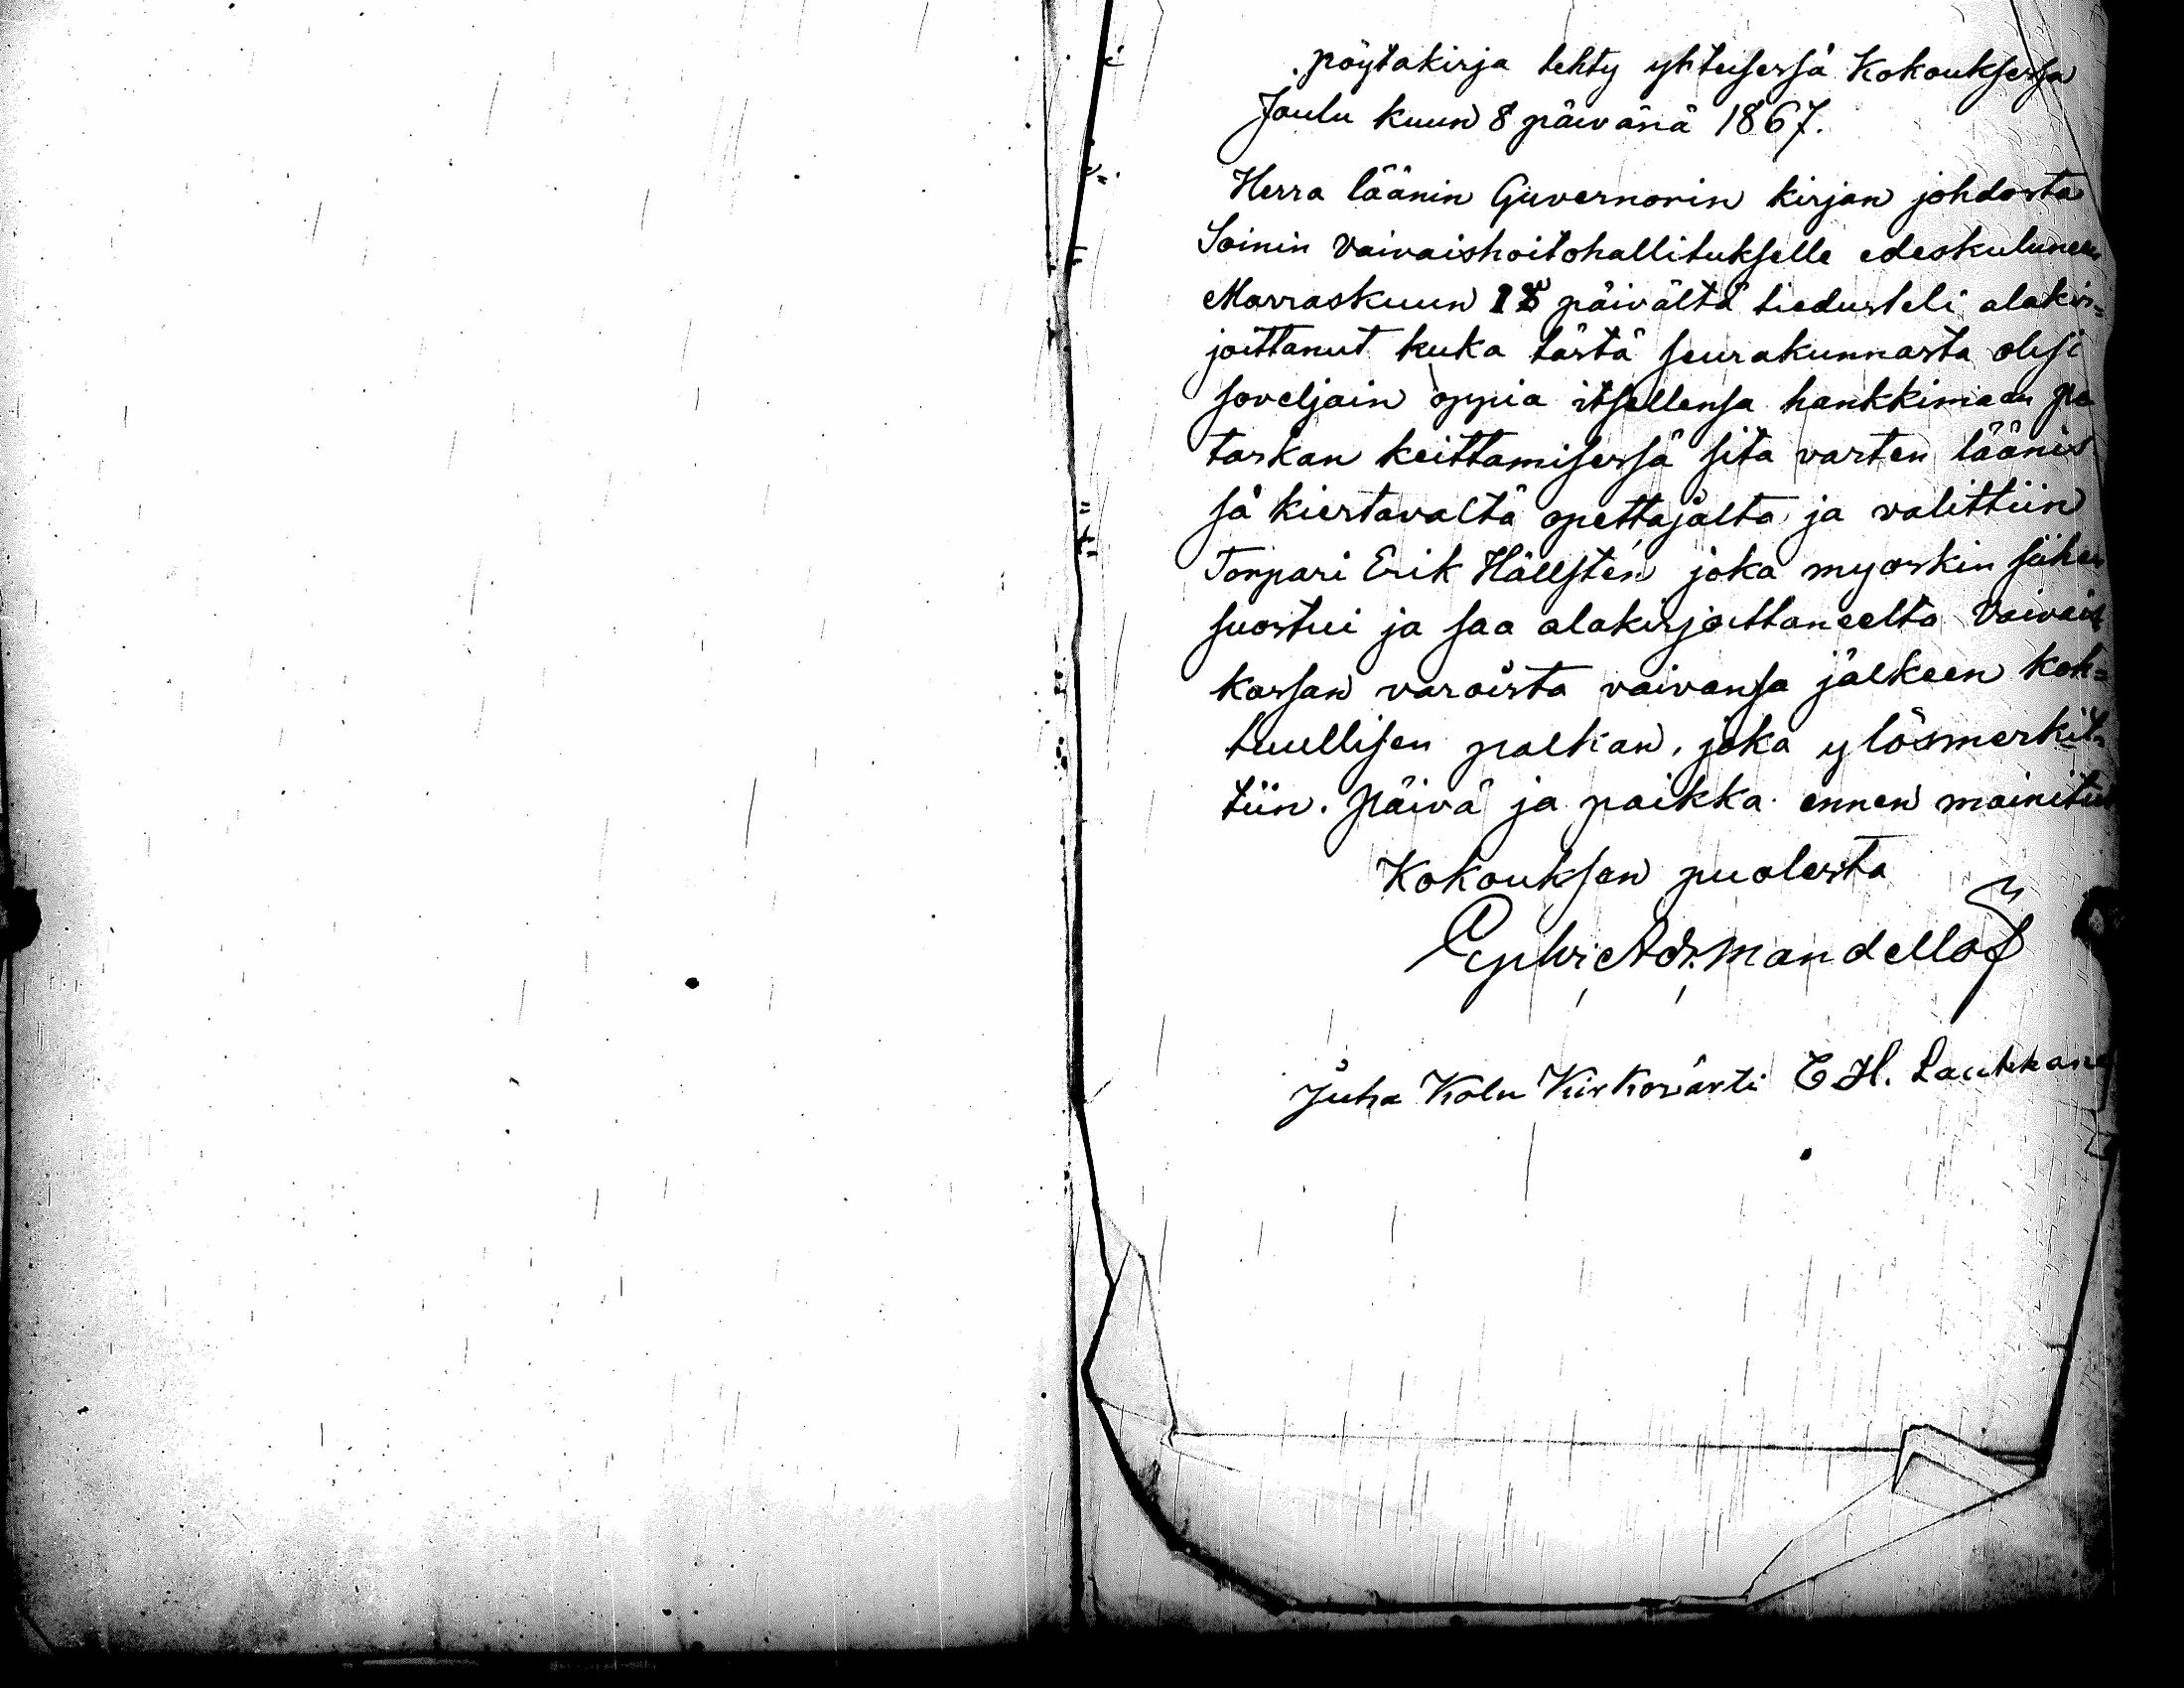 pöytäkirja tehty yhteisessä Kokouksessa
Joulu kuun 8 päivänä 1867.
Herra läänin Guvernorin kirjan johdosta
Soinin Vaivaishoitohallitukselle edeskulunen
Marraskuun päivältä tiedusteli alakir=
joittanut kuka tästä seurakunnasta olisi
soveljain oppia itsellensa hankkimaan po
taskan keittamisessä sitä varten läänis
sä kiertavaltä opettajalta ja valittiin
Torpari Erik Hällstén joka myoskin siihen
suostui ja saa alakirjoittaneelta Vaivais
kassan varoista vaivansa jälkeen koh=
tuullisen palkan, joka ylösmerkit=
tiin. Päivä ja paikka ennen mainitut
Kokouksen puolesta
Mandellöf
Juha Kolu Kirkovärti E H. Laukkane